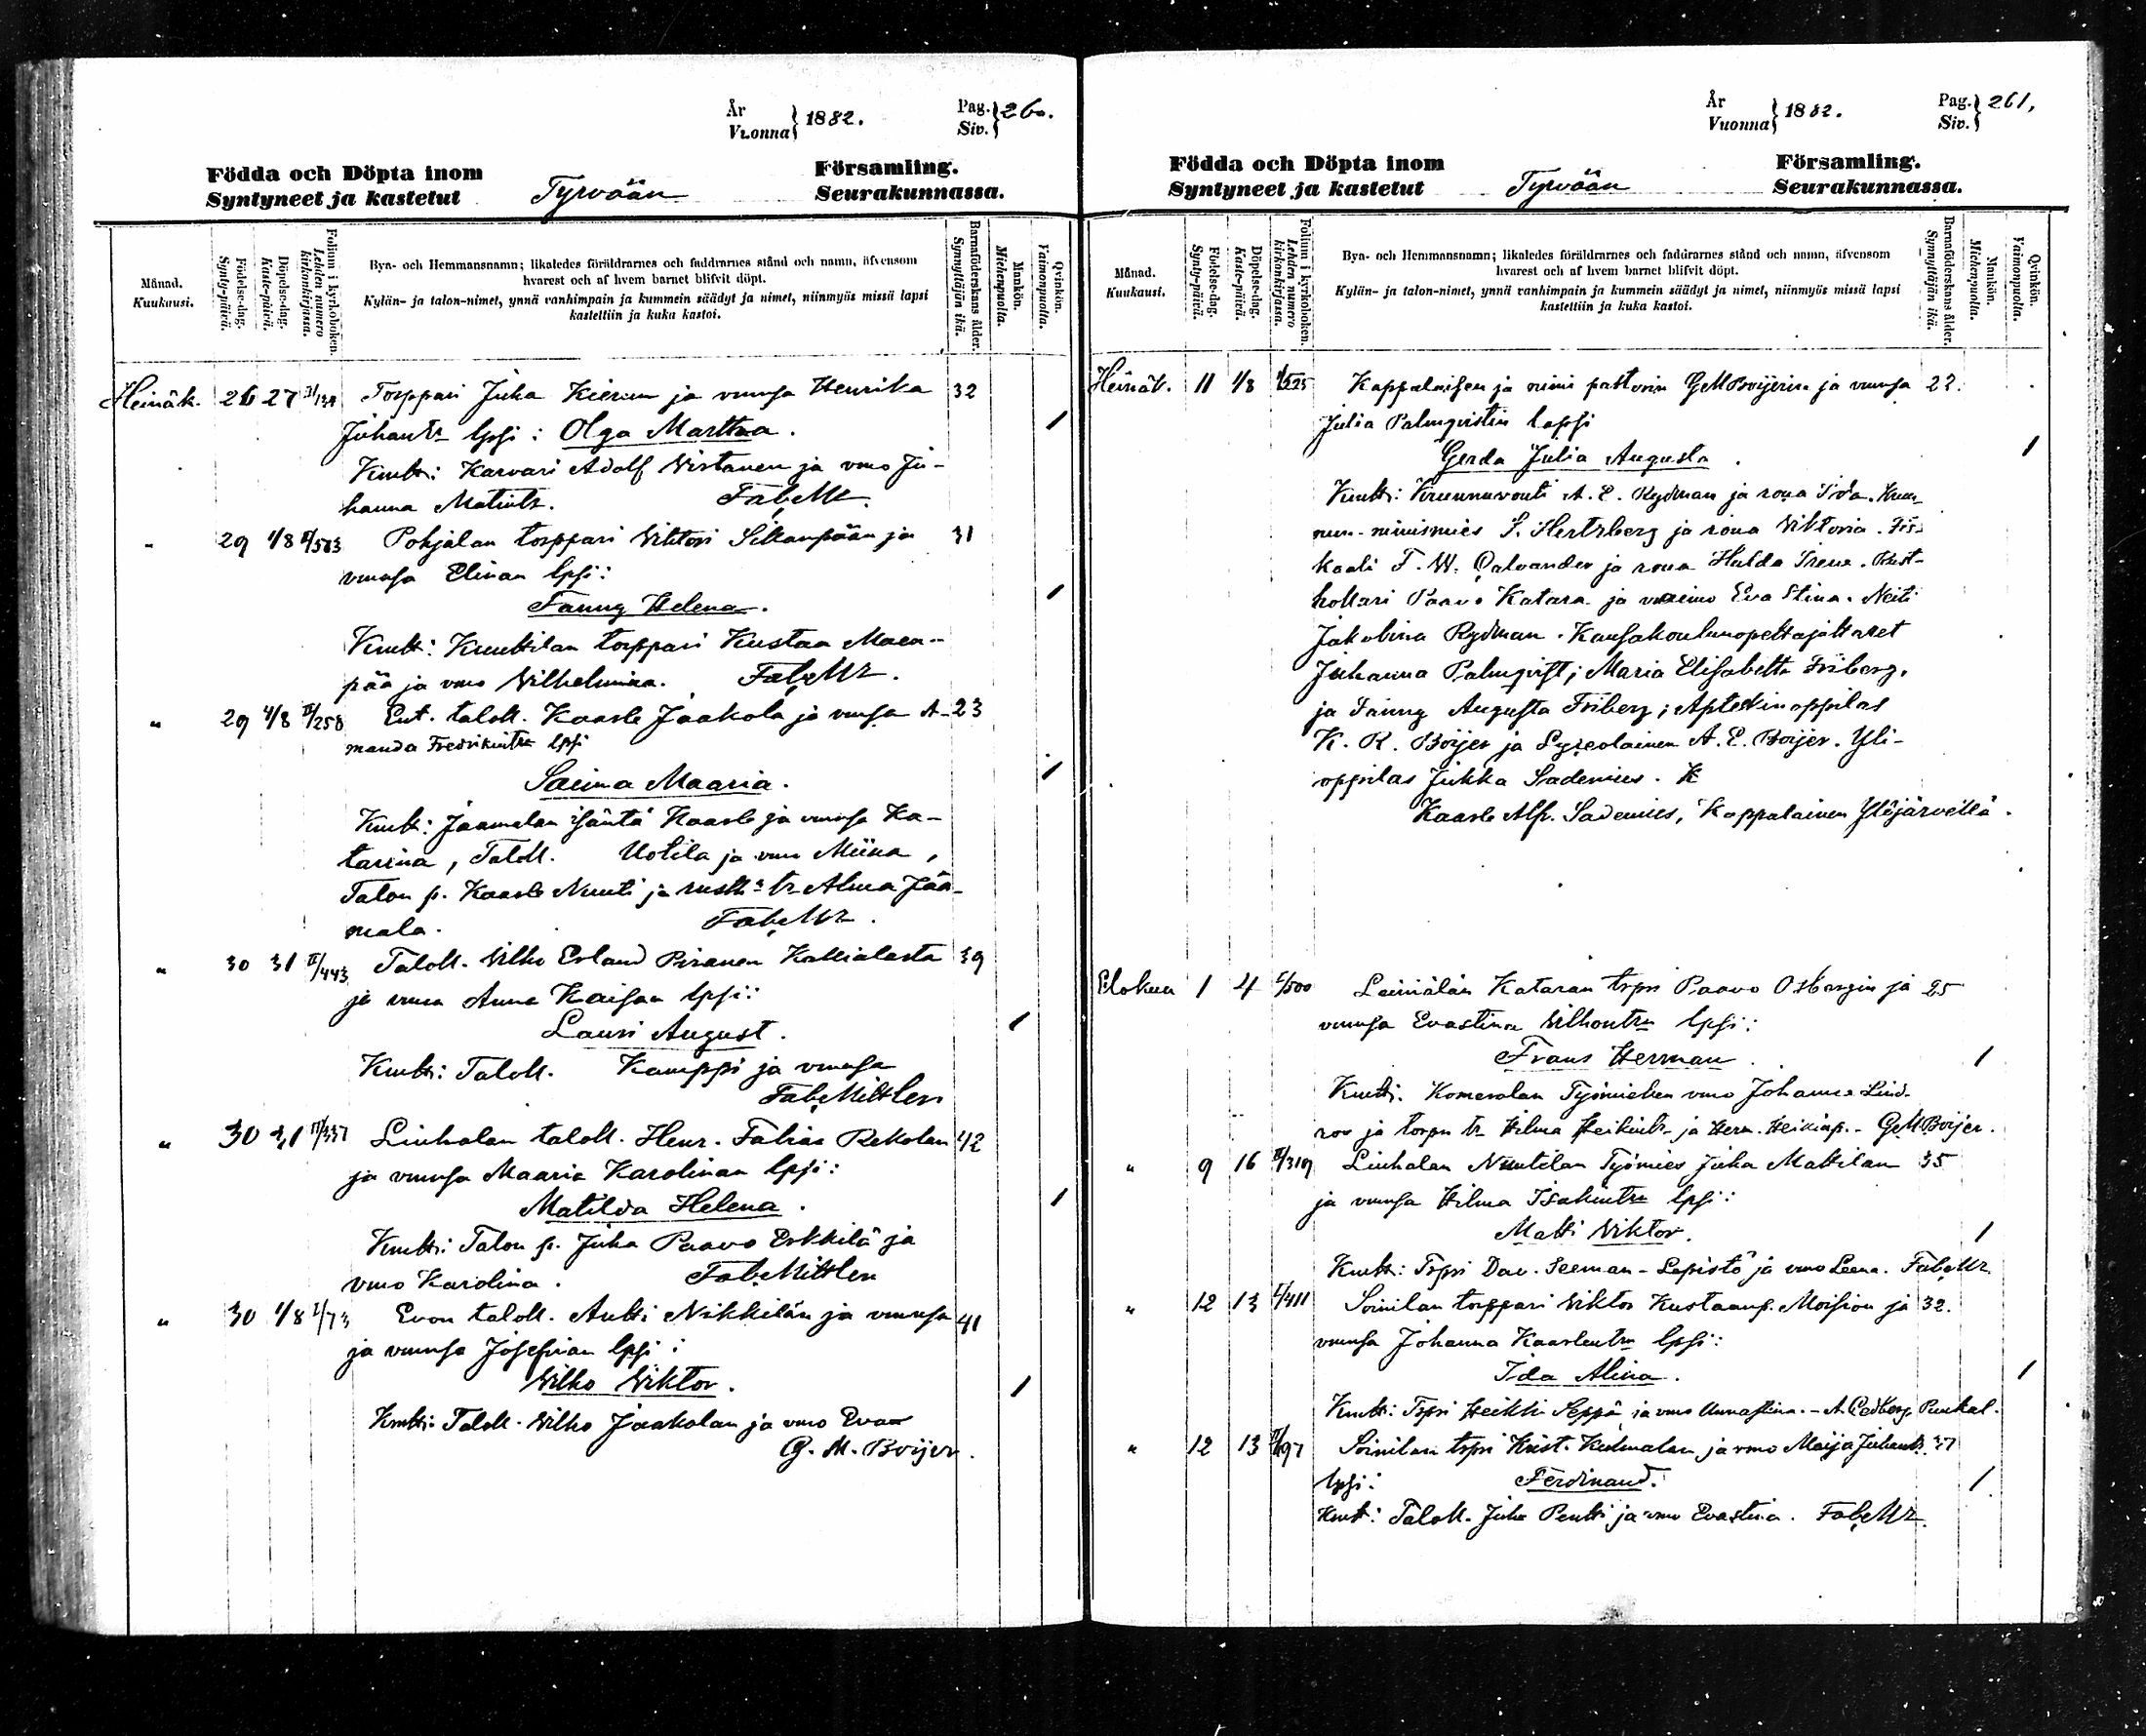 År
Vuonna } 1882.
Pag.
Siv. } 260.
Födda och Döpta inom Församling.
Syntyneet ja kastetut Tyrvään Seurakunnassa.
Månad.
Kuukausi.
Födelse-dag.
Synty-päivä.
Döpelse-dag.
Kaste-päivä.
Folium i kyrkoboken.
Lehden numero kirkonkirjassa.
Bya- och Hemmansnamn; likaledes föräldrarnes och faddrarnes stånd och namn, äfvensom
hvarest och af hvem barnet blifvit döpt.
Kylän- ja talon-nimet, ynnä vanhimpain ja kummein säädyt ja nimet, niinmyös missä lapsi
kastettiin ja kuka kastoi.
Barnaföderskans ålder.
Synnyttäjän ikä.
Mankön.
Miehenpuolta.
Qvinkön.
Vaimonpuolta.
Heinäk. 26 27 Torppari Juha Kierun ja vmnsa Henrika 32
Juhantr lpsi: Olga Marttaa. 1
Kmtt: Karvari Adolf Wirtanen ja vmo Ju-
hanna Matintr. Fab. Mr.
" 29 1/8 Pohjalan torppari Wihtori Sillanpään ja 31
vmnsa Elinan lpsi:
Fanny Helena. 1
Kmtt: Kuuttilan torppari Kustaa Maen-
pää ja vmo Wilhelmina. Fab. Mr.
" 29 4/8 II/258 Ent. taloll. Kaarle Jaakola ja vmnsa A- 23
manda Fredrikintr lpsi
Saima Maaria. 1
Kmtt: Jaamalan isäntä Kaarle ja vmnsa Ka-
tarina, Taloll. Uotila ja vmo Miina,
Talon p. Kaarle Nuuti ja rustt. tr Alma Jaa-
mala. Fab. Mr.
" 30 31 II/443 Taloll. Wilho Erland Piranen Kallialasta 39
ja vmsa Anna Kaisan lpsi:
Lauri August. 1
Kmtt: Taloll. Kamppi ja vmnsa
Fab. Mittler
" 30 31 II/337 Liuhalan taloll. Henr. Fabian Rekolan 42
ja vmnsa Maaria Karolinan lpsi:
Matilda Helena. 1
Kmtt: Talon p. Juha Paavo Erkkilä ja
vmo Karolina. Fab. Mittler
" 30 1/8 I/73 Evon taloll. Antti Nikkilän ja vmnsa 41
ja vmnsa Josefinan lpsi:
Wilho Wiktor. 1
Kmtt: Taloll. Wilho Jaakolan ja vmo Evaa
G. M. Boijer.
År
Vuonna } 1882.
Pag.
Siv. } 261,
Födda och Döpta inom Församling.
Syntyneet ja kastetut Tyrvään Seurakunnassa.
Månad.
Kuukausi.
Födelse-dag.
Synty-päivä.
Döpelse-dag.
Kaste-päivä.
Folium i kyrkoboken.
Lehden numero kirkonkirjassa.
Bya- och Hemmansnamn; likaledes föräldrarnes och faddrarnes stånd och namn, äfvensom
hvarest och af hvem barnet blifvit döpt.
Kylän- ja talon-nimet, ynnä vanhimpain ja kummein säädyt ja nimet, niinmyös missä lapsi
kastettiin ja kuka kastoi.
Barnaföderskans ålder.
Synnyttäjän ikä.
Mankön.
Miehenpuolta.
Qvinkön.
Vaimonpuolta.
Heinäk. 11 1/8 Kappalaisen ja vara pastorin G M Boijerin ja vmnsa 22.
Julia Palmqvistin lapsi
Gerda Julia Augusta. 1
Kmtt: Kruununvouti A. E. Rydman ja roua Ida. Kruu-
nun-nimismies S. Hertzberg ja roua Wiktoria. Fis-
kaali F. W. Qalvander ja roua Hulda Irene. Rust-
hollari Paavo Katara ja vaimo Eva Stina. Neiti
Jakobina Rydman. Kansakoulunopettajattaret
Juhanna Palmqvist; Maria Elisabetta Friberg,
ja Fanny Augusta Friberg; Aptekinoppilas
K. R. Boijer ja Lyseolainen A. E. Boijer. Yli-
oppilas Jukka Sadenius. K
Kaarle Alfr. Sadenius, Kappalainen Ylöjärvellä.
Elokuu 1 4 I/500 Leiniälän Kataran trpri Paavo Osbergin ja 25
vmnsa Evastina Wilhontr lpsi:
Frans Herman. 1
Kmtt: Komeralan Työmiehen vmo Johanna Lind-
ros ja torpn tr Hilma Heikintr ja Herm. Heikinp. - G M Boijer.
" 9 16 II/319 Liuhalan Nuutilan Työmies Juha Mattilan 35
ja vmnsa Hilma Isakintr lpsi:
Matti Wiktor. 1
Kmtt: Trpri Dav. Seeman-Lepistö ja vmo Leena. Fab. Mr.
" 12 13 I/411 Soinilan torppari Wiktor Kustaanp. Moision ja 32.
vmnsa Johanna Kaarlentr lpsi:
Ida Alina. 1
Kmtt: Trpri Heikki Seppä ja vmo Annastina. - A. Cedberg. Punkal.
" 12 13 Soinilan trpri Krist. Kulmalan ja vmo Maija Juhantr 37
lpsi: Ferdinand. 1
Kmtt: Taloll. Juha Pentti ja vmo Evastina. Fab. Mr.